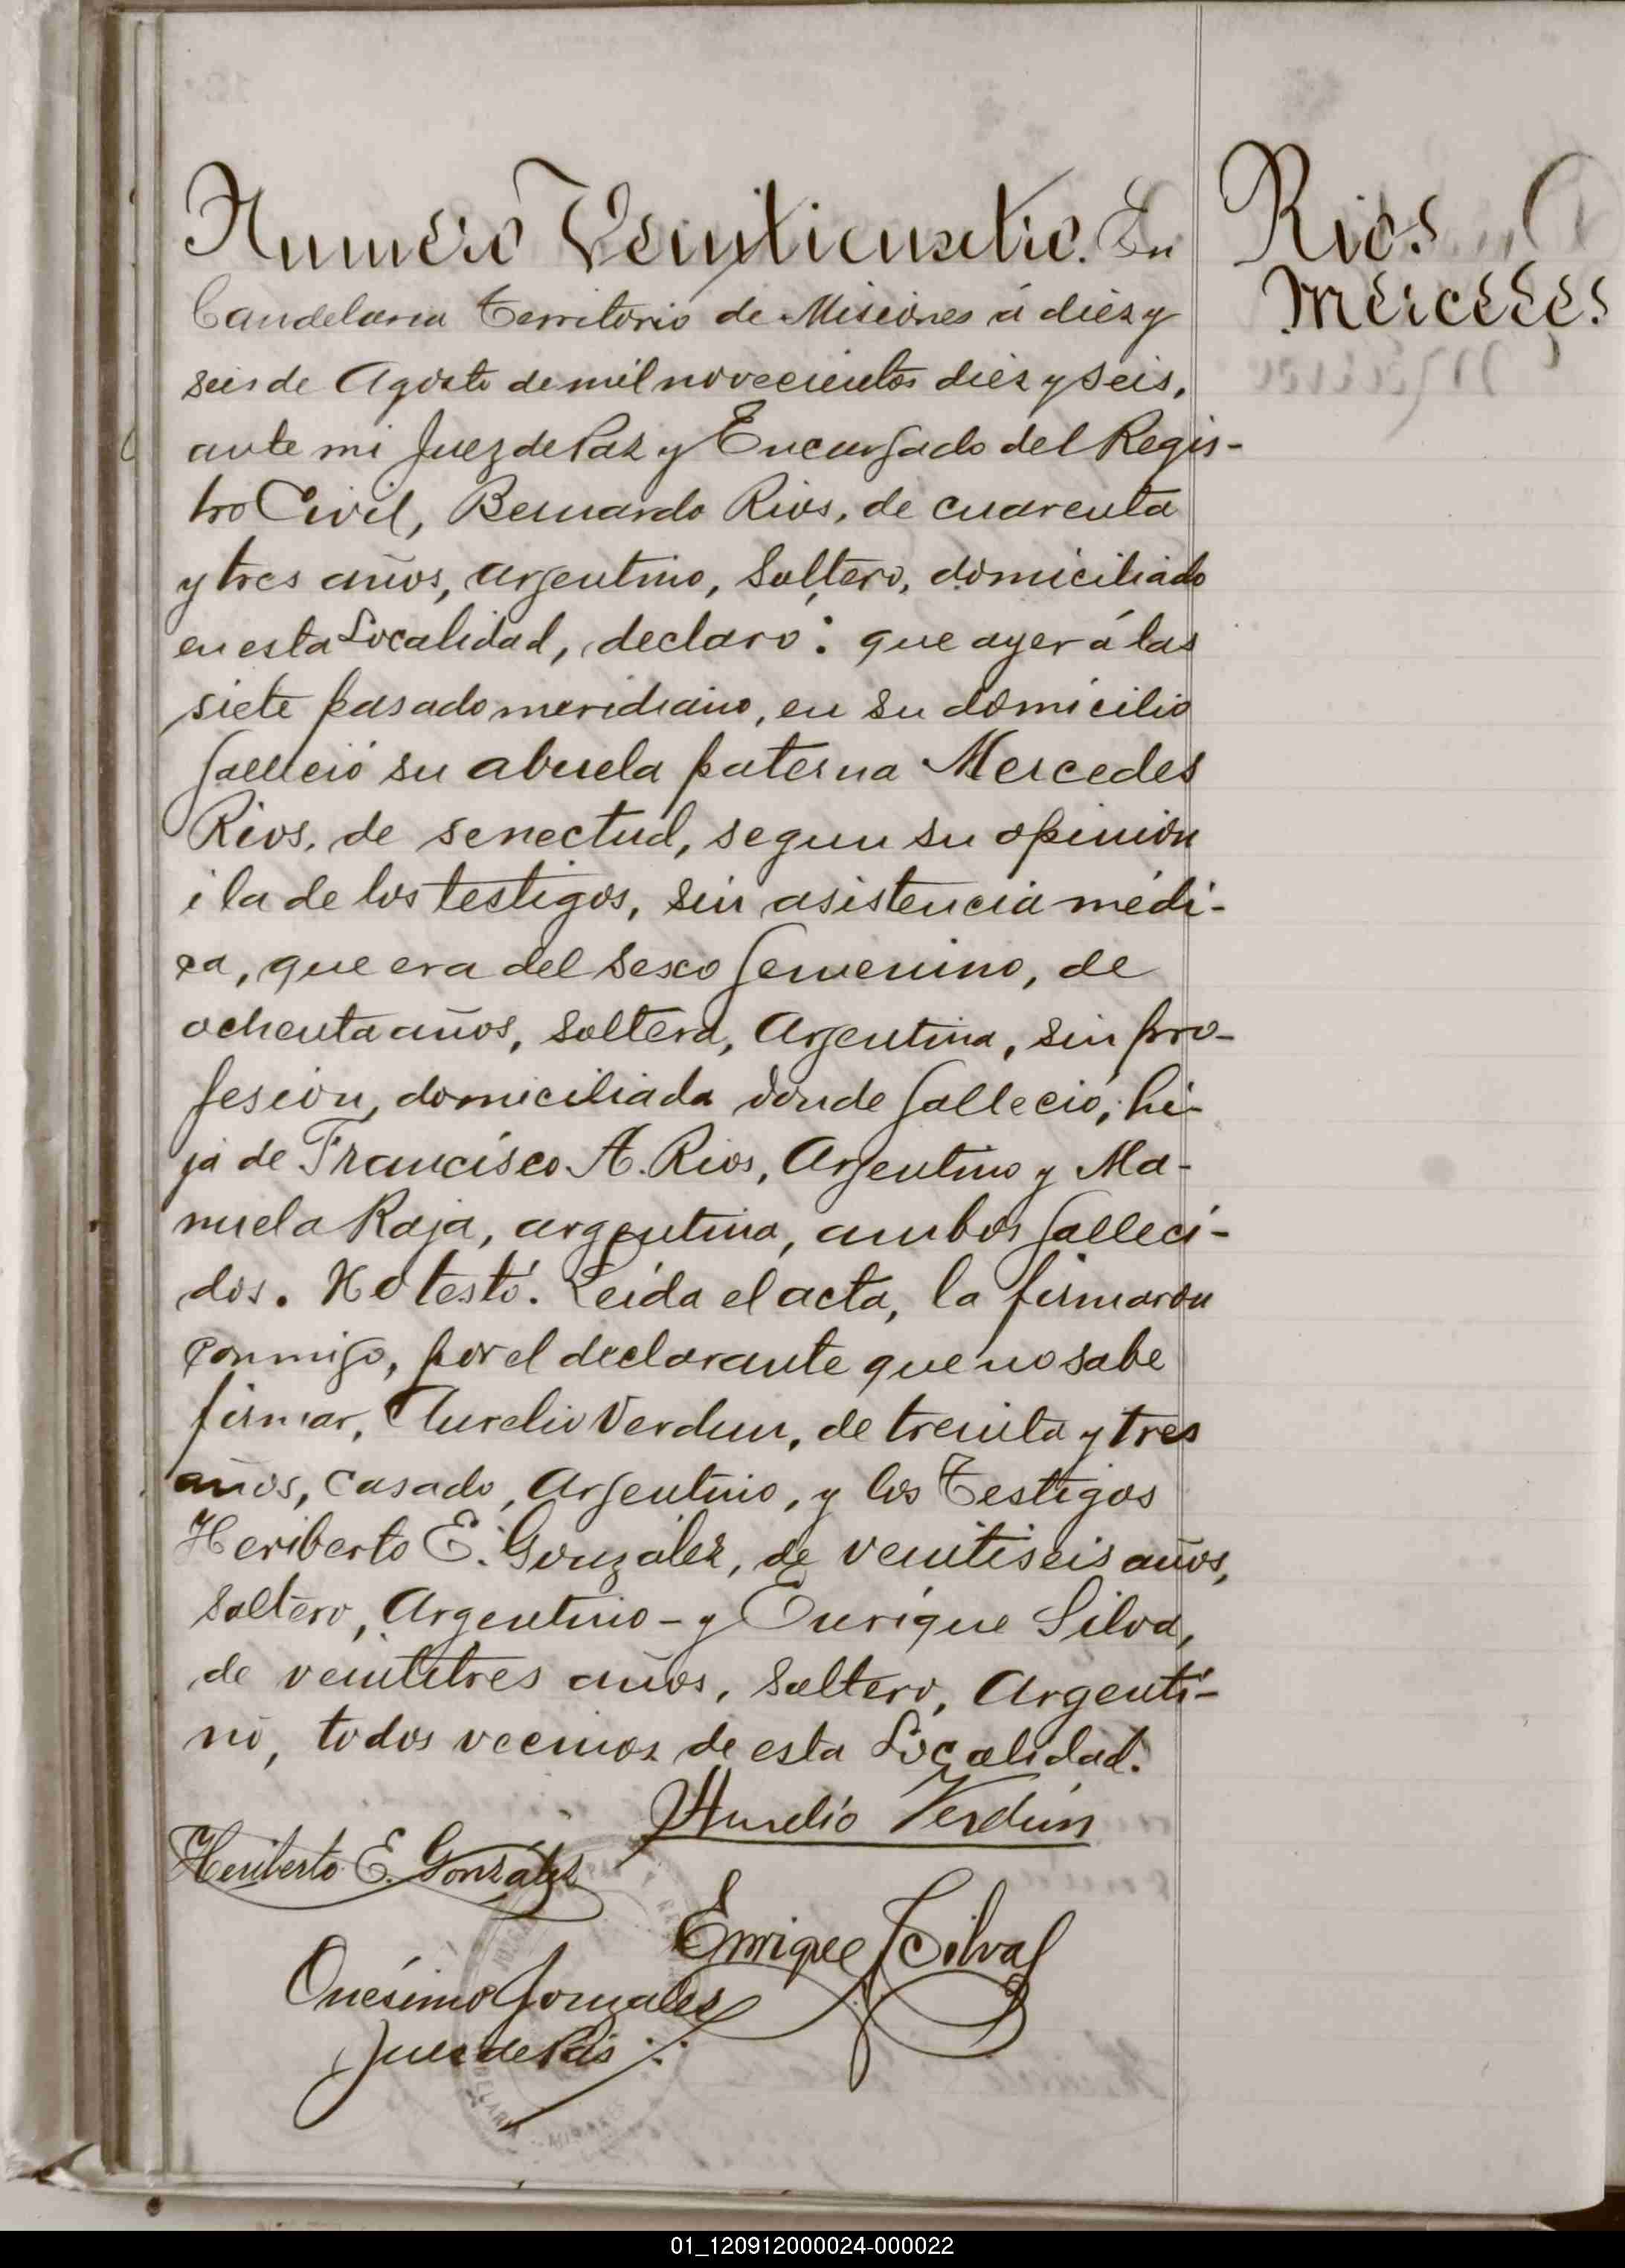 Numero Veinticuatro. En
Rios
Mercedes.
Candelaria Territorio de Misiones á diez y
seis de Agosto de mil novecientos diez y seis,
ante mi Juez de Paz y Encargado del Regis-
tro Civil, Bernardo Rios, de cuarenta
y tres años, argentino, Soltero, domiciliado
en esta Localidad, declaró: que ayer á las
siete pasado meridiano, en su domicilio
falleció su abuela paterna Mercedes
Rios, de senectud, segun su opinión
i la de los testigos, sin asistencia médi-
ca, que era del sexo femenino, de
ochenta años, soltera, Argentina, sin pro-
fesión, domiciliada donde falleció; hi-
ja de Francisco A. Rios, Argentino y Ma-
nuela Raja, argentina, ambos falleci-
dos. No testó. Leida el acta, la firmaron
conmigo, por el declarante que no sabe
firmar, Aurelio Verdun, de treinta y tres
años, casado, Argentino, y los Testigos
Heriberto E. Gonzalez, de veintiseis años,
soltero, Argentino - y Enrique Silva,
de veintitres años, soltero, Argenti-
no, todos vecinos de esta Localidad.
Aurelio Verdún
Heriberto E. Gonzalez
Enrique Silva
Onésimo Gonzales
Juez de Pas
01_120912000024-000022